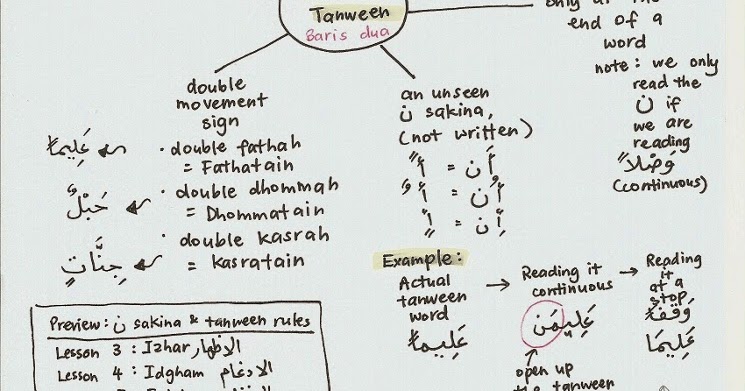 Tanween
Baris dua
only at the
end of a
word
note: we only
read the
ن if
we are
reading
وَصْلاً
(continuous)
double
movement
sign
عَلِيماً
· double fathah
= Fathatain
حَبْلٌ
· double dhommah
= Dhommatain
جِنَّاتٍ
· double kasrah
= kasratain
an unseen
ن sakina,
(not written)
أَن = أً
أُن = أٌ
إِن = إٍ
Example:
Actual
tanween
word
عَلِيماً
Reading it
continuous
عَلِيمَن
open up
the tanween
Reading
it
at a
stop
وَقْفاً
عَلِيمَا
Preview: ن sakina & tanween rules
Lesson 3 : Izhar الإظهار
Lesson 4 : Idgham الإدغام